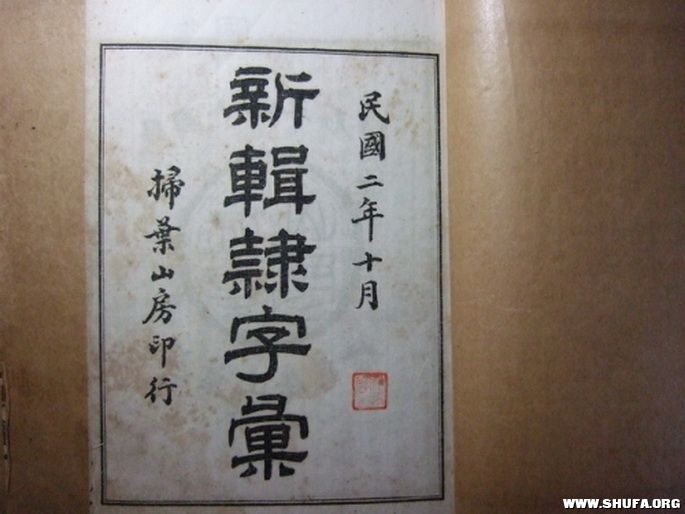 民國二年十月
新輯隸字彙
掃葉山房印行
WWW.SHUFA.ORG